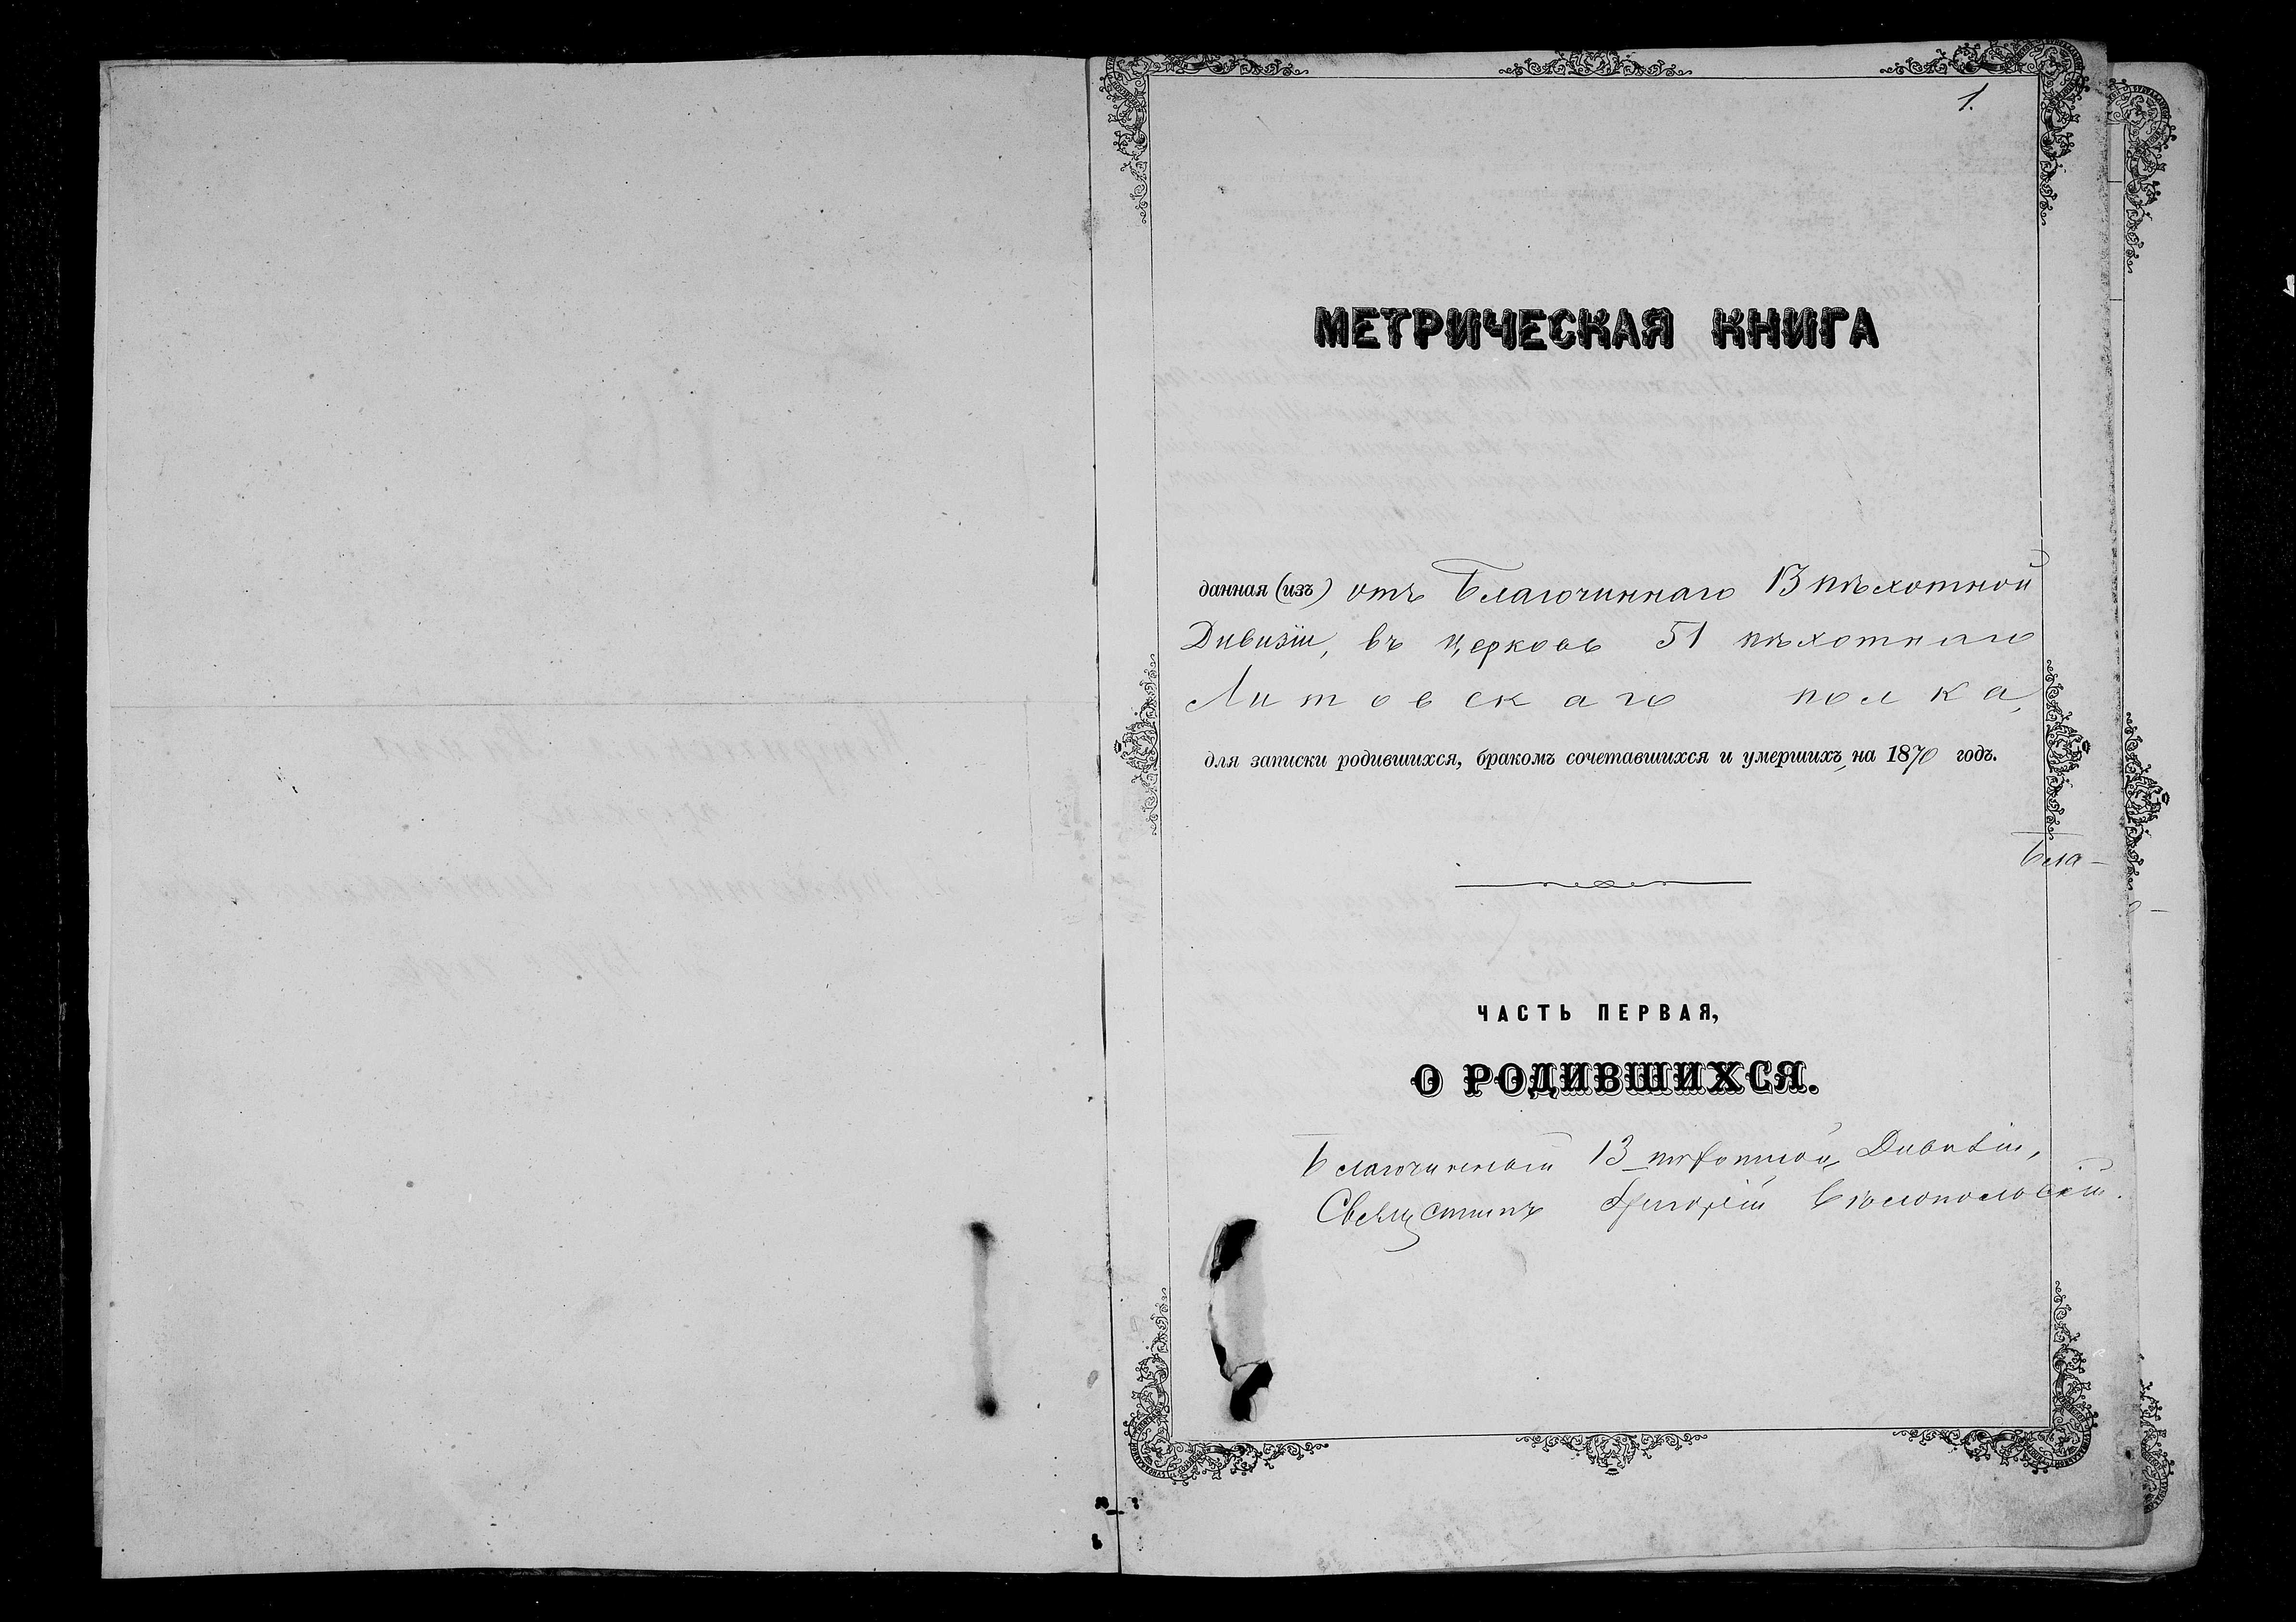 1.
МЕТРИЧЕСКАЯ КНИГА
данная (изъ) отъ Благочиннаго 13 пѣхотной
Дивизіи, въ церковь 51 пѣхотнаго
Литовскаго полка,
для записки родившихся, бракомъ сочетавшихся и умершихъ, на 1870 годъ.
Бла-
ЧАСТЬ ПЕРВАЯ,
О РОДИВШИХСЯ.
Благочинный 13 пѣхотной Дивизіи,
Священникъ Григорій